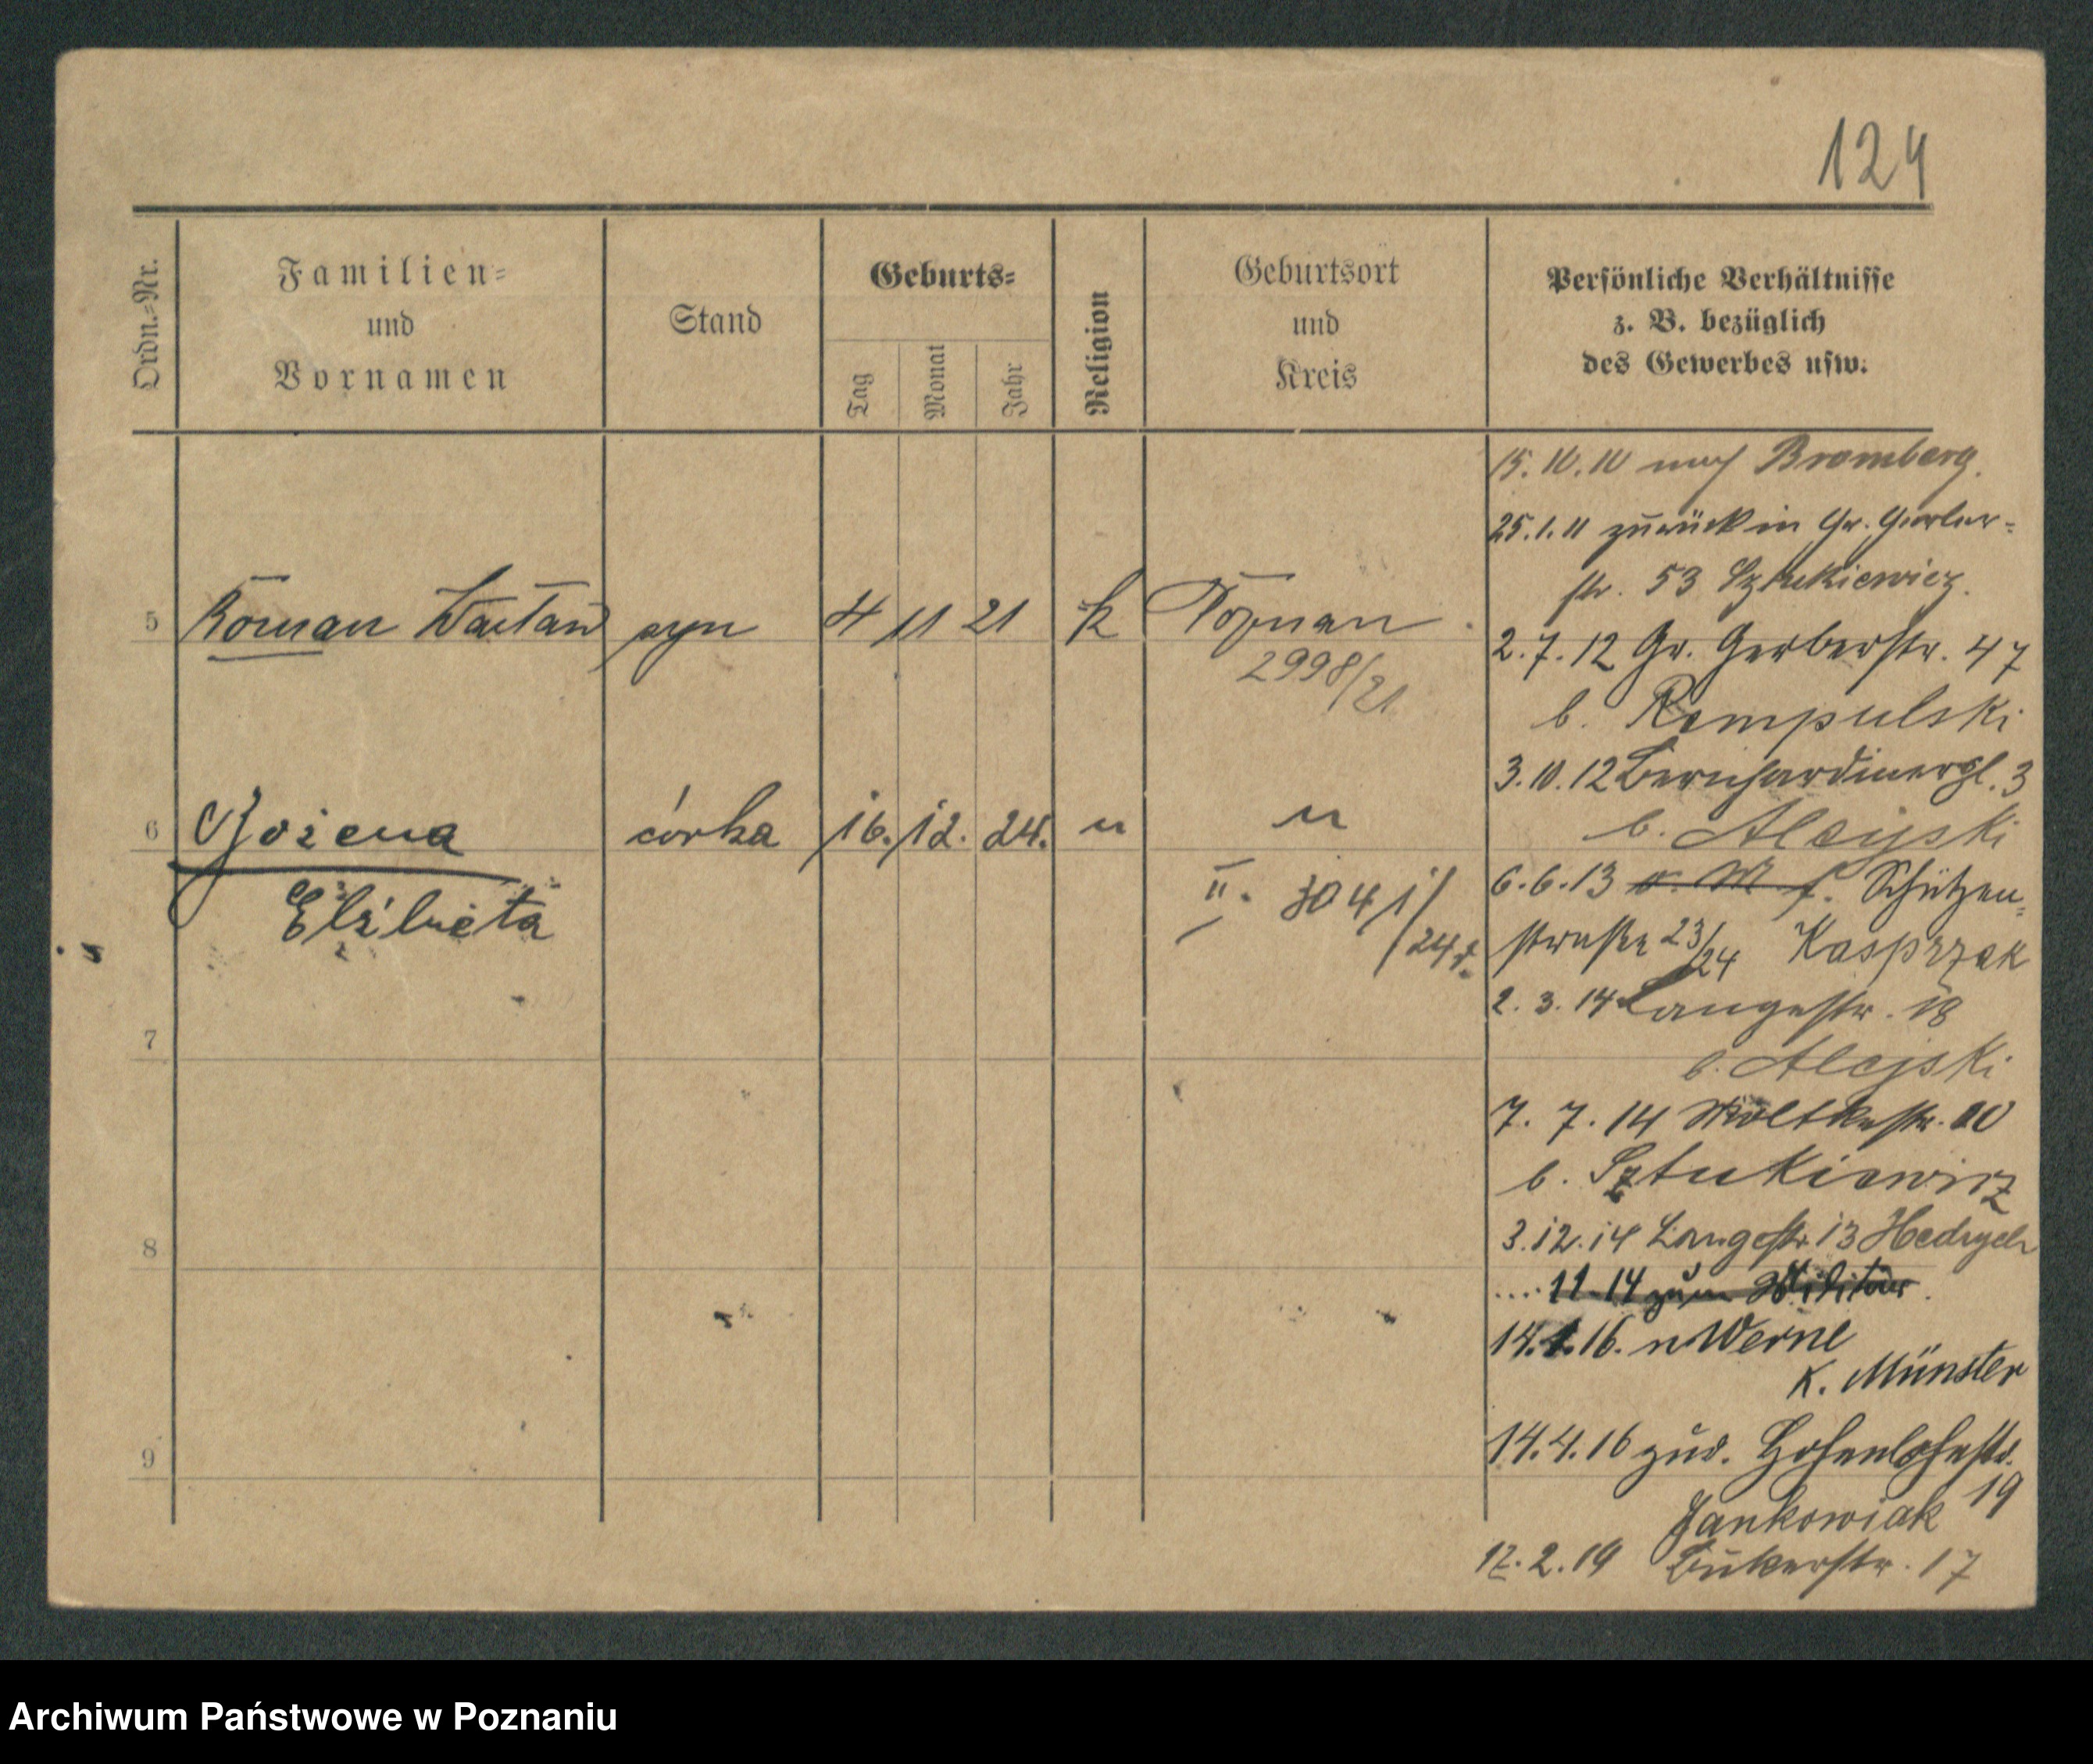 124
Ordn.-Nr.
Familien-
und
Vornamen
Stand
Geburts-
Tag
Monat
Jahr
Religion
Geburtsort
und
Kreis
Persönliche Verhältnisse
z. B. bezüglich
des Gewerbes usw.
5 Roman Wacław syn 4 11 21 k Poznan
2998/21
6 Bożena córka 16. 12. 24. " "
Elżbieta
II. 3041/24
7
8
9
15.10.10 nach Bromberg.
25.1.11 zurück in Gr. Gerber-
str. 53 Sztukiewicz.
2.7.12 Gr. Gerberstr. 47
b. Rempulski
3.10.12 Bernhardinerpl. 3
b. Alejski
6.6.13 Schützen-
straße 23/24 Kasprzak
2.3.14 Langestr. 18
b. Alejski
7.7.14 Moltkestr. 10
b. Sztukiewicz
3.12.14 Langestr. 13 Hedrych
11.14 zum Militär
14.1.16. n Werne
K. Münster
14.4.16 zur. Hohenlohestr.
19
Jankowiak
12.2.19 Bukerstr. 17
Archiwum Państwowe w Poznaniu